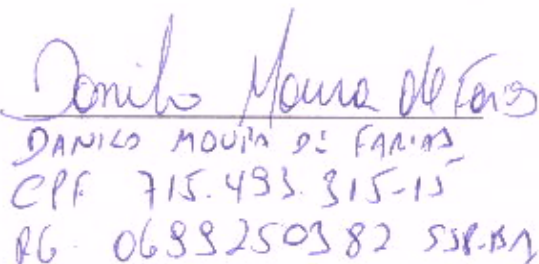 Danilo Moura de Farias
DANILO MOURA DE FARIAS
CPF 715.493.315-15
RG. 0699250382 SSP-BA